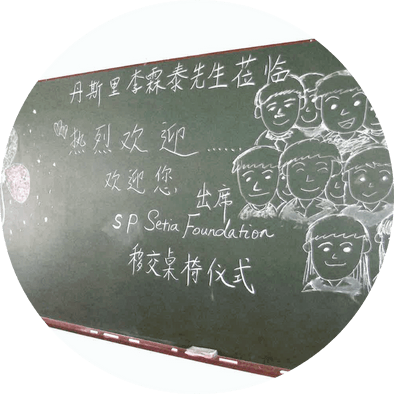 丹斯里李霖泰先生莅临
热烈欢迎......
欢迎您
出席
SP Setia Foundation
移交桌椅仪式